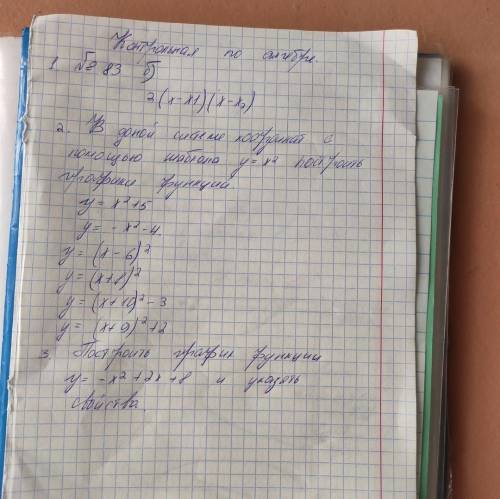 Контрольная по алгебре.
1. № 83 б)
2(x-x1)(x-x2)
2. В одной системе координат с
помощью шаблона y=x² построить
графики функции.
y=x²+5
y=-x²-4.
y=(x-6)²
y=(x+8)²
y=(x+10)²-3
y=(x+9)²+2
3. Построить график функции
y=-x²+2x+8 и указать
свойства.